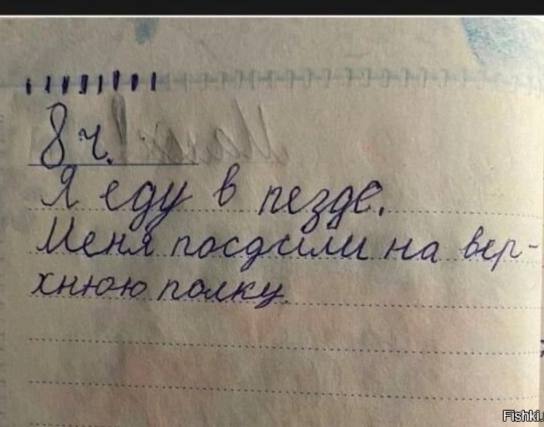 8 ч.
Я еду в пезде.
Меня посдили на вер-
хнюю полку.
Fishki.